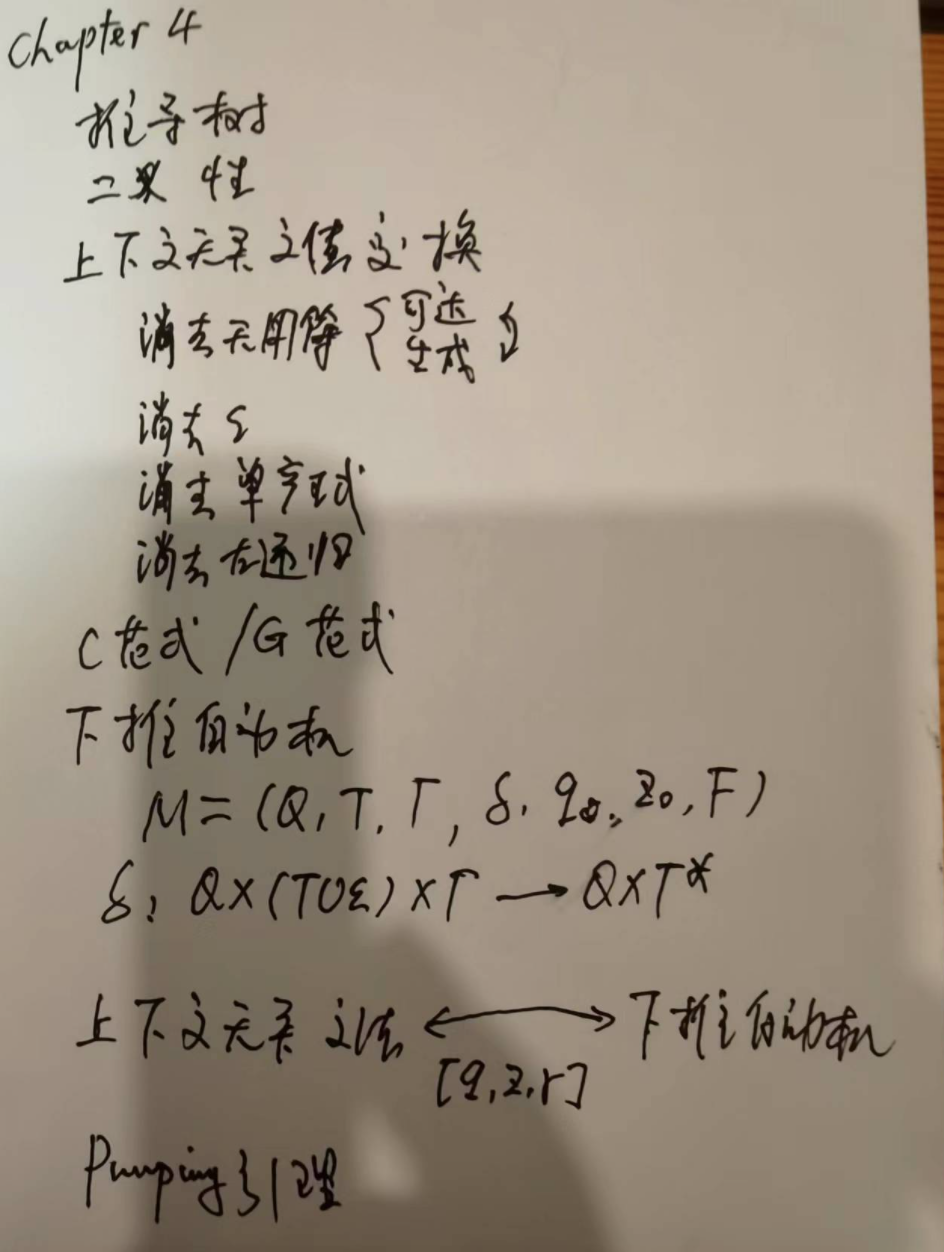 Chapter 4
推导树
二义性
上下文无关文法变换
消去无用符{可达 生成}
消去ε
消去单产生式
消去左递归
C范式/G范式
下推自动机
M=(Q,T,Γ,δ,q₀,z₀,F)
δ: Q×(T∪ε)×Γ→Q×Γ*
上下文无关文法 ↔ 下推自动机
[q,z,r]
Pumping引理